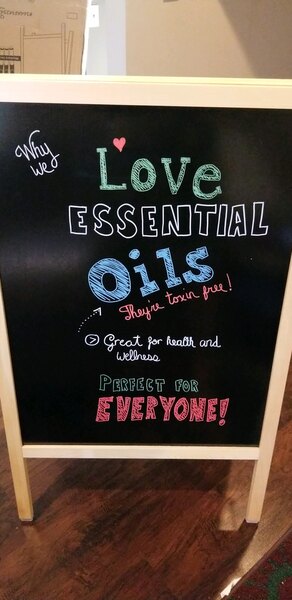 Why
we
Love
ESSENTIAL
Oils
They're toxin free!
Great for health and
wellness
PERFECT FOR
EVERYONE!